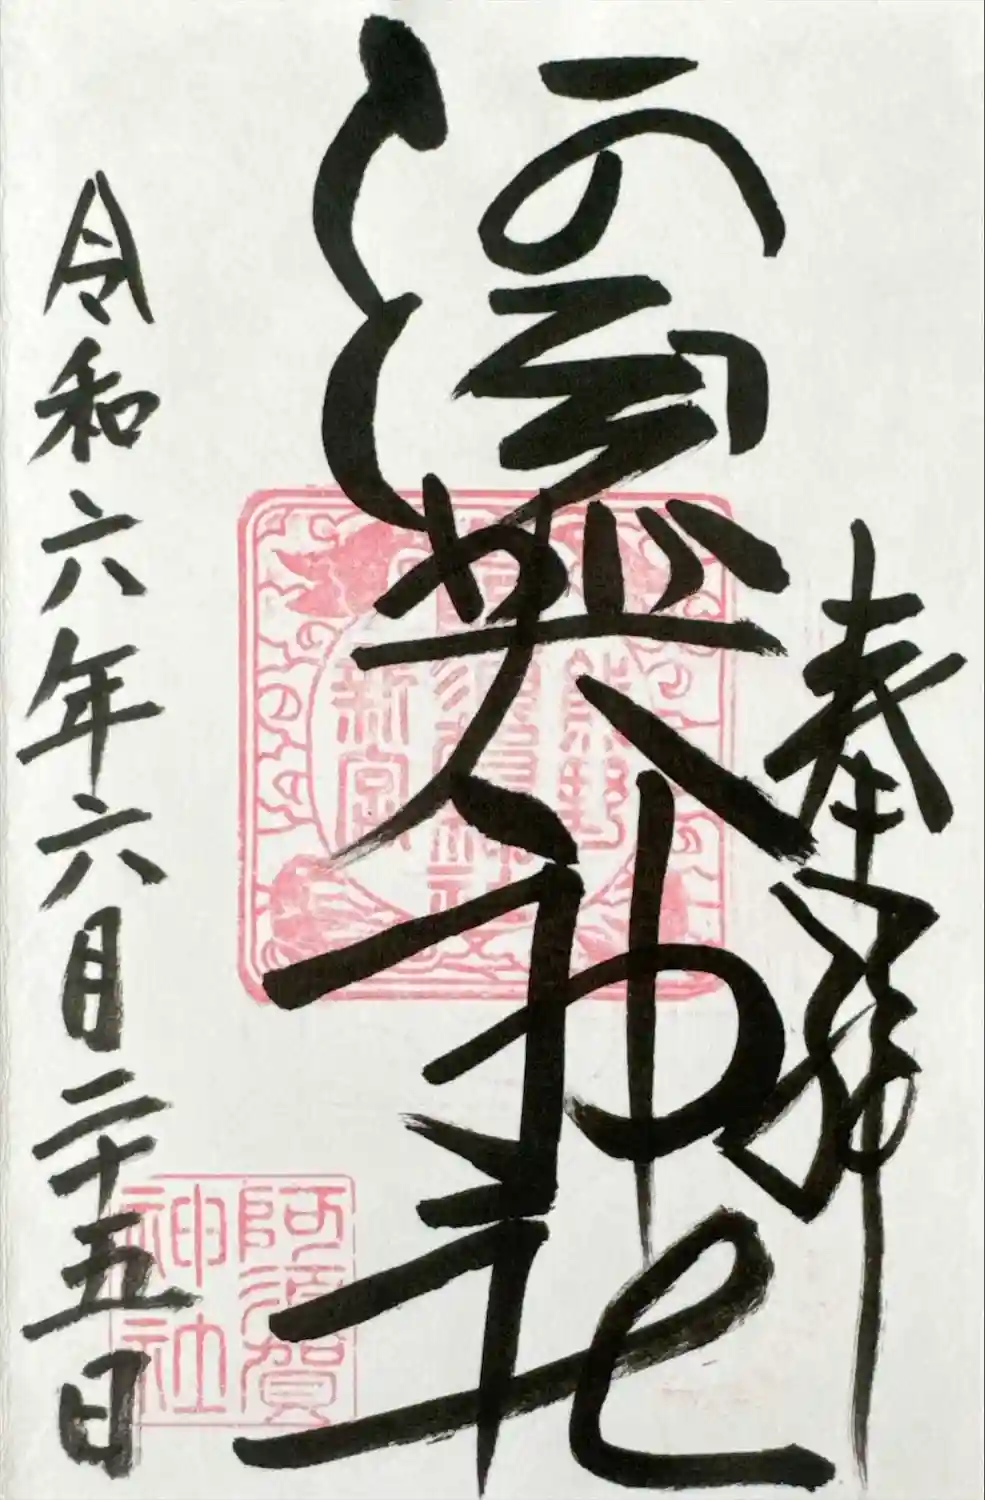 奉拝
阿須賀大神社
令和六年六月二十五日
熊野
阿須賀神社
新宮
阿須賀
神社